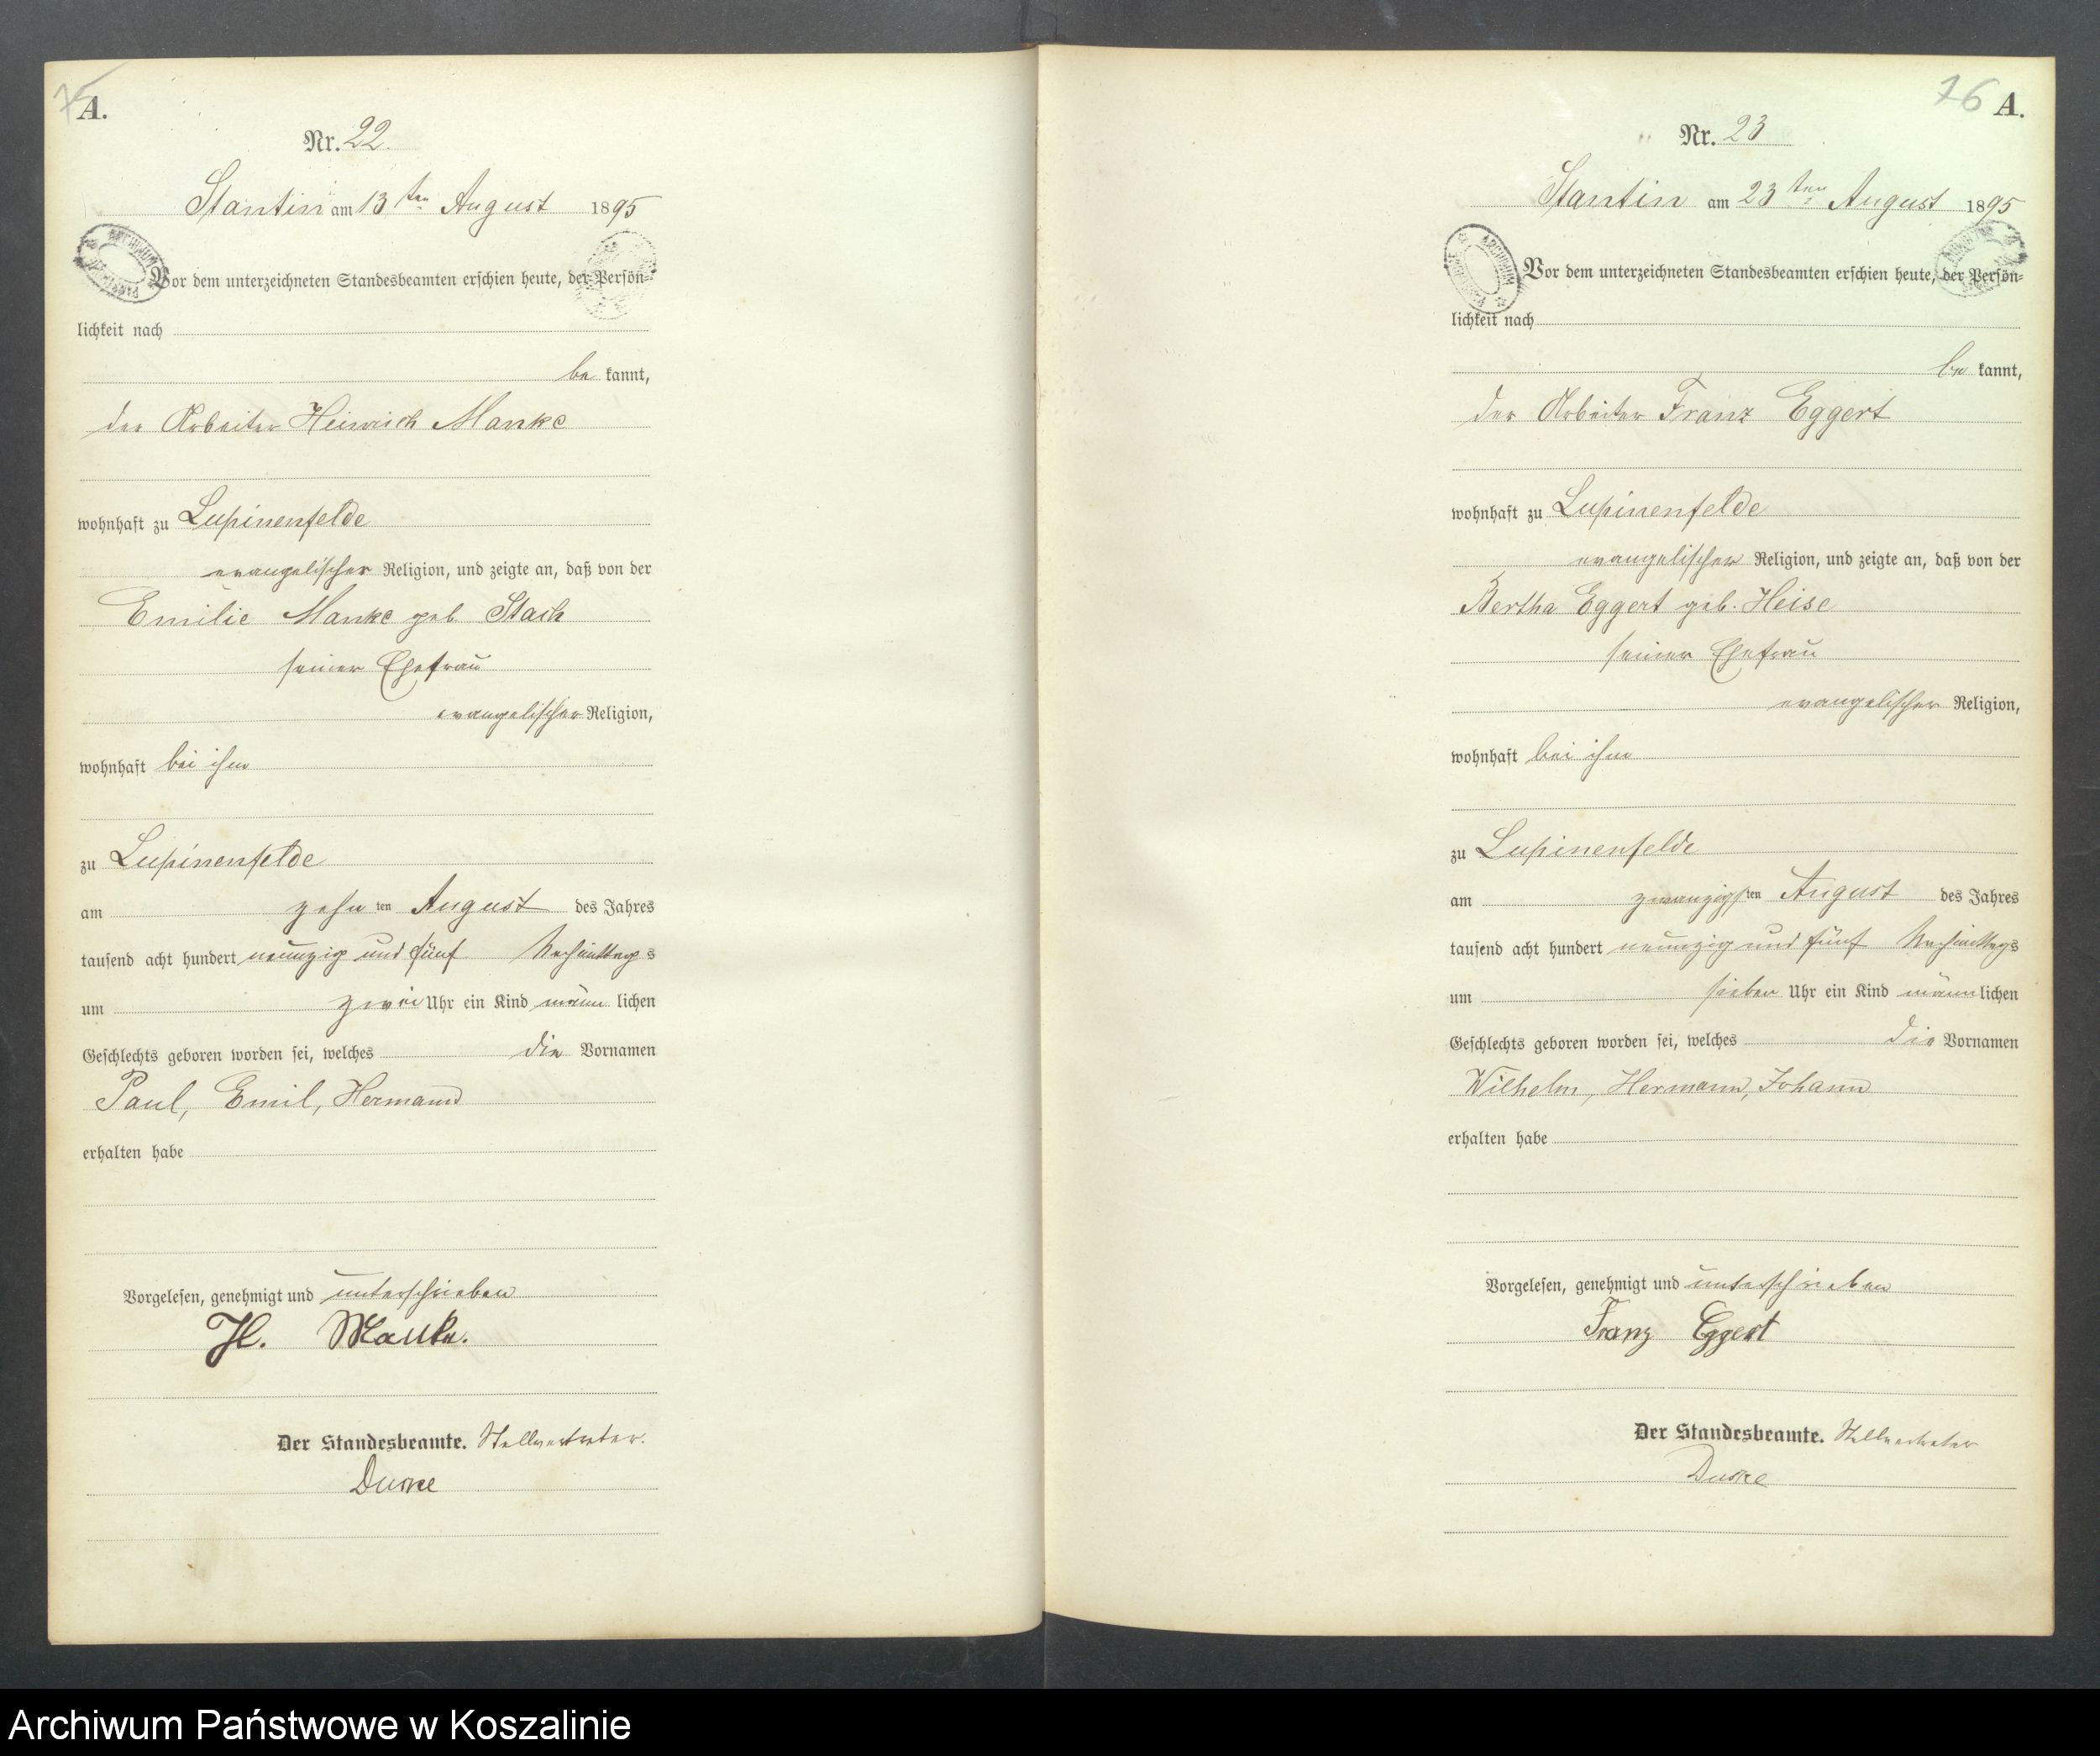 75
A.
Nr. 22.
Stantin am 13ten August 1895
Vor dem unterzeichneten Standesbeamten erschien heute, der Persön-
lichkeit nach
be kannt,
der Arbeiter Heinrich Manke
wohnhaft zu Lupinenfelde
evangelischer Religion, und zeigte an, daß von der
Emilie Manke geb Stach
seiner Ehefrau
evangelischer Religion,
wohnhaft bei ihm
zu Lupinenfelde
am zehn ten August des Jahres
tausend acht hundert neunzig und fünf Nachmittag s
um zwei Uhr ein Kind männ lichen
Geschlechts geboren worden sei, welches die Vornamen
Paul, Emil, Hermann
erhalten habe
Vorgelesen, genehmigt und unterschrieben
H. Manke.
Der Standesbeamte. Stellvertreter.
76
A.
Nr. 23
Stantin am 23ten August 1895
Vor dem unterzeichneten Standesbeamten erschien heute, der Persön-
lichkeit nach
be kannt,
der Arbeiter Franz Eggert
wohnhaft zu Lupinenfelde
evangelischer Religion, und zeigte an, daß von der
Bertha Eggert geb. Heise
seiner Ehefrau
evangelischer Religion,
wohnhaft bei ihm
zu Lupinenfelde
am zwanzigsten August des Jahres
tausend acht hundert neunzig und fünf Nachmittags
um sieben Uhr ein Kind männlichen
Geschlechts geboren worden sei, welches die Vornamen
Wilhelm, Hermann, Johann
erhalten habe
Vorgelesen, genehmigt und unterschrieben
Franz Eggert
Der Standesbeamte. Stellvertreter
Archiwum Państwowe w Koszalinie